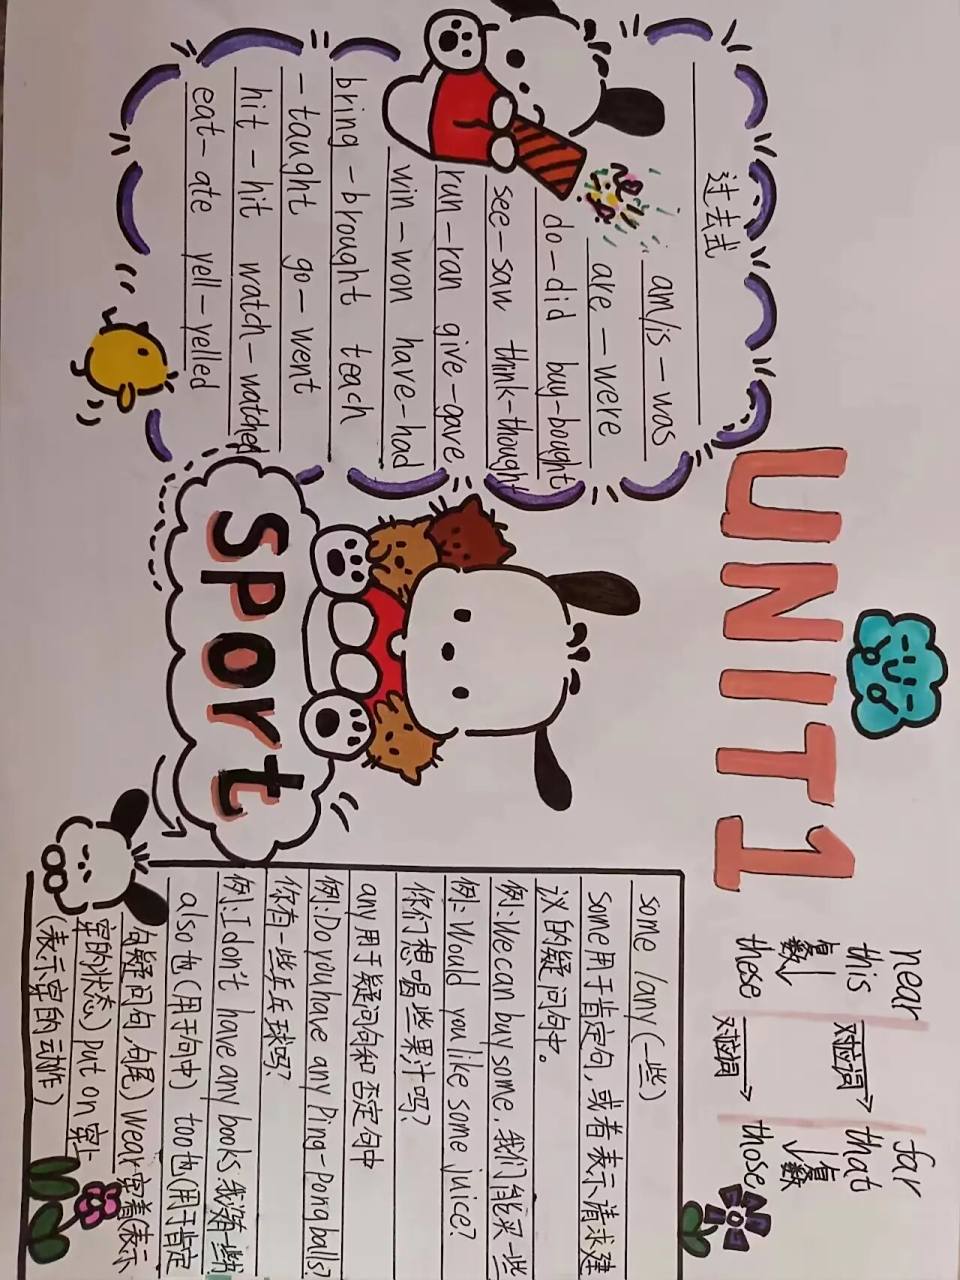 UNIT 1
过去式
am/is-was
are-were
do-did buy-bought
see-saw think-thought
run-ran give-gave
win-won have-had
bring-brought teach
-taught go-went
hit-hit watch-watched
eat-ate yell-yelled
sport
near far
this 对应词 that
复数 复数
these 对应词 those
some /any(一些)
some用于肯定句,或者表示请求建
议的疑问句中。
例:We can buy some.我们能买一些
例:Would you like some juice?
你们想喝些果汁吗?
any用于疑问句和否定句中
例:Do you have any Ping-Pong balls?
你有一些乒乓球吗?
例:I don't have any books.我没有一些书
also 也(用于句中) too 也(用于肯定
句疑问句,句尾) wear 穿着(表示
穿的状态) put on 穿上
(表示穿的动作)